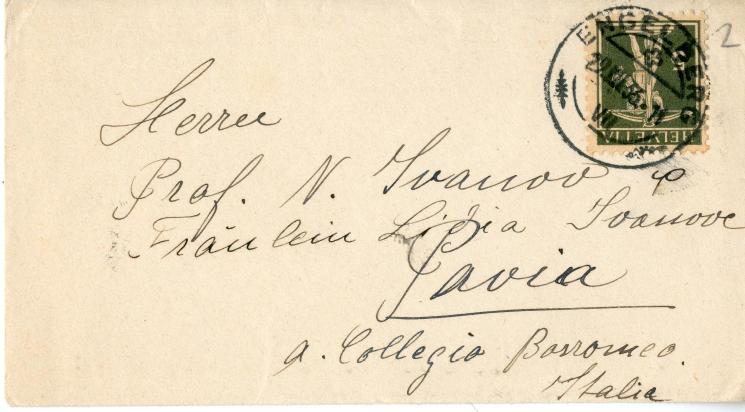 2
ENGELBERG
VII
HELVETIA
Herrn
Prof. V. Ivanov &
Fräulein Lidia Ivanove
Pavia
a. Collegio Borromeo.
Italia